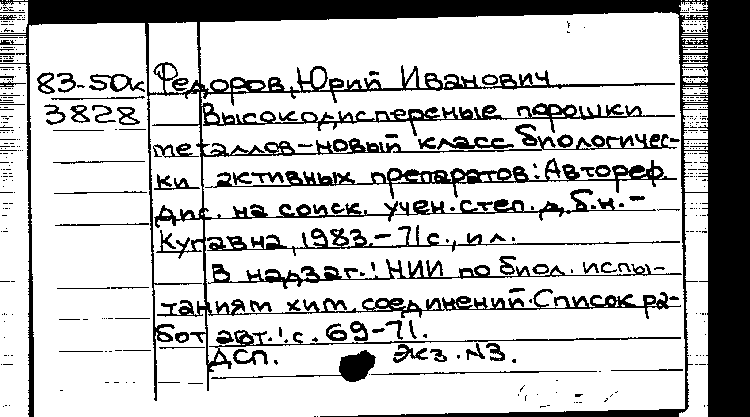 83-5Dк Федоров, Юрий Иванович
3828 Высокодисперсные порошки
металлов-новый класс биологичес-
ки активных препаратов: Автореф.
дис. на соиск. учен. степ. д.б.н.-
Купавна, 1983.-71с., ил.
В надзаг.: НИИ по биол. испы-
таниям хим. соединений. Список ра-
бот авт.: с. 69-71.
ДСП. Экз. №3.